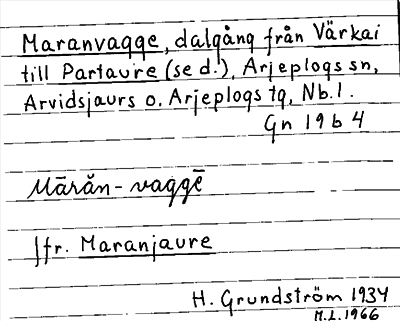 Maranvagge, dalgång från Värkai
till Partaure (se d.), Arjeplogs sn,
Arvidsjaurs o. Arjeplogs tg, Nb.l.
Gn 19 b 4
Mārăn-vaggē
Jfr. Maranjaure
H. Grundström 1934
M.L. 1966